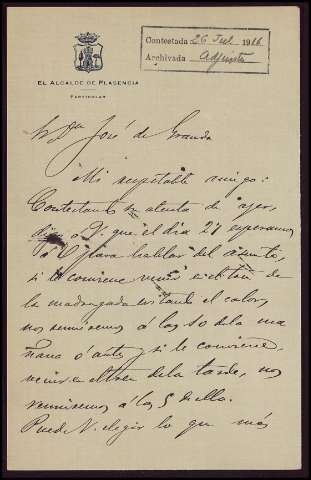 Contestada 26 Jul 1916
Archivada Adjunta
EL ALCALDE DE PLASENCIA
PARTICULAR
Sr Dn José de Granda
Mi respetable amigo:
Contestando su atenta de ayer,
digo a V. que el día 27 esperamos
á V. para hablar del asunto,
si le conviene venir en el tren de
la madrugada evitando el calor,
nos reuniremos á las 10 de la ma
ñana ó antes, y si le conviene
venir en el tren de la tarde, nos
reuniremos á las 5 de ella.
Puede V. elegir lo que más